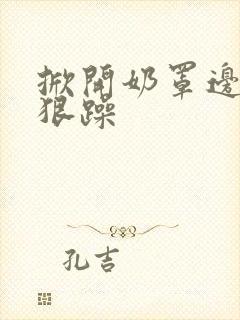 掀開奶罩邊
狠躁
孔吉